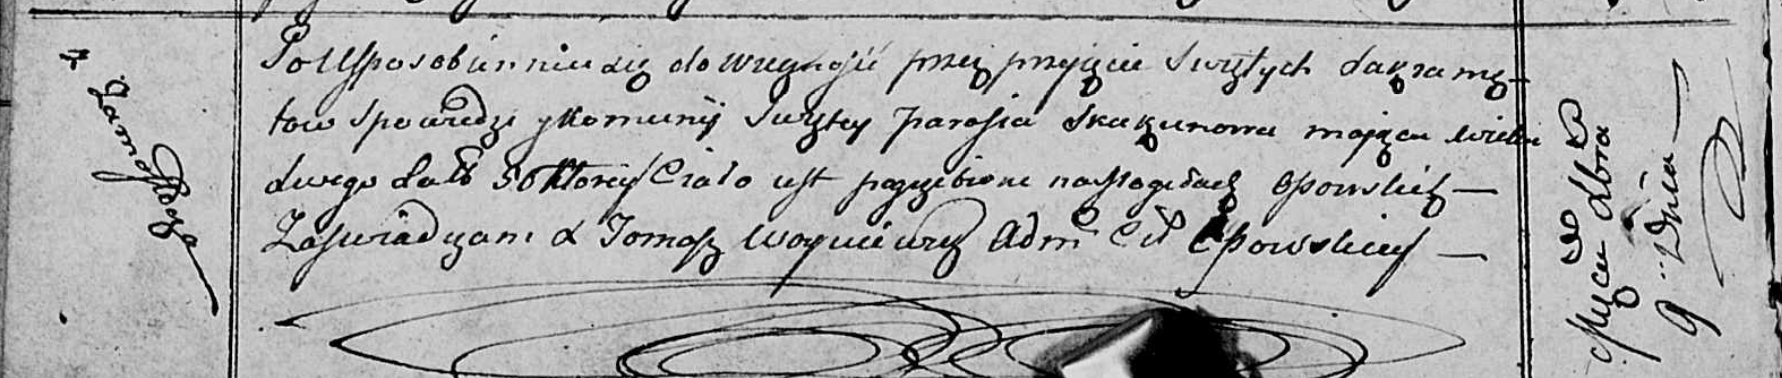 z Zamosza
Po Usposobinniu się do wiecznosci przez przyięcie Swiętych Sakramę-
tow Spowiedzi y Komunij Swiętey Parasia Skakunowa maiąca wieku
swego Lat 50 Ktorey Ciało iest pogrzebione na Mogiłach Opowskich —
Zaswiadczam X Tomasz Woyniewicz Adm Cer Opowskiey —
Mca Xbra
9 Dnia